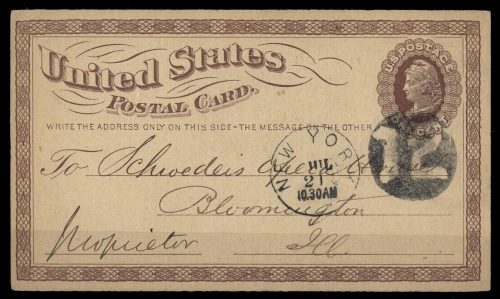 United States
POSTAL CARD.
U.S. POSTAGE
WRITE THE ADDRESS ONLY ON THIS SIDE-THE MESSAGE ON THE OTHER
NEW YORK
JUL
21
10.30AM
To Schroeders Opera House
Bloomington
Proprietor Ill.